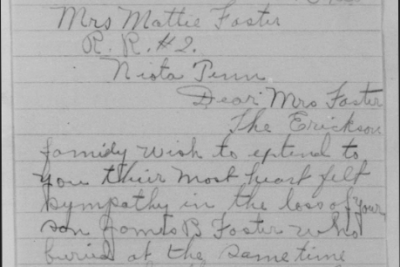 Mrs Mattie Foster
R. R. #2.
Niota Tenn
Dear Mrs Foster
The Erickson
family wish to extend to
you their most heart felt
sympathy in the loss of your
son James B Foster who
buried at the same time